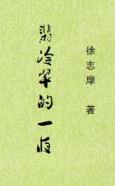 翡冷翠的一夜
徐志摩 著